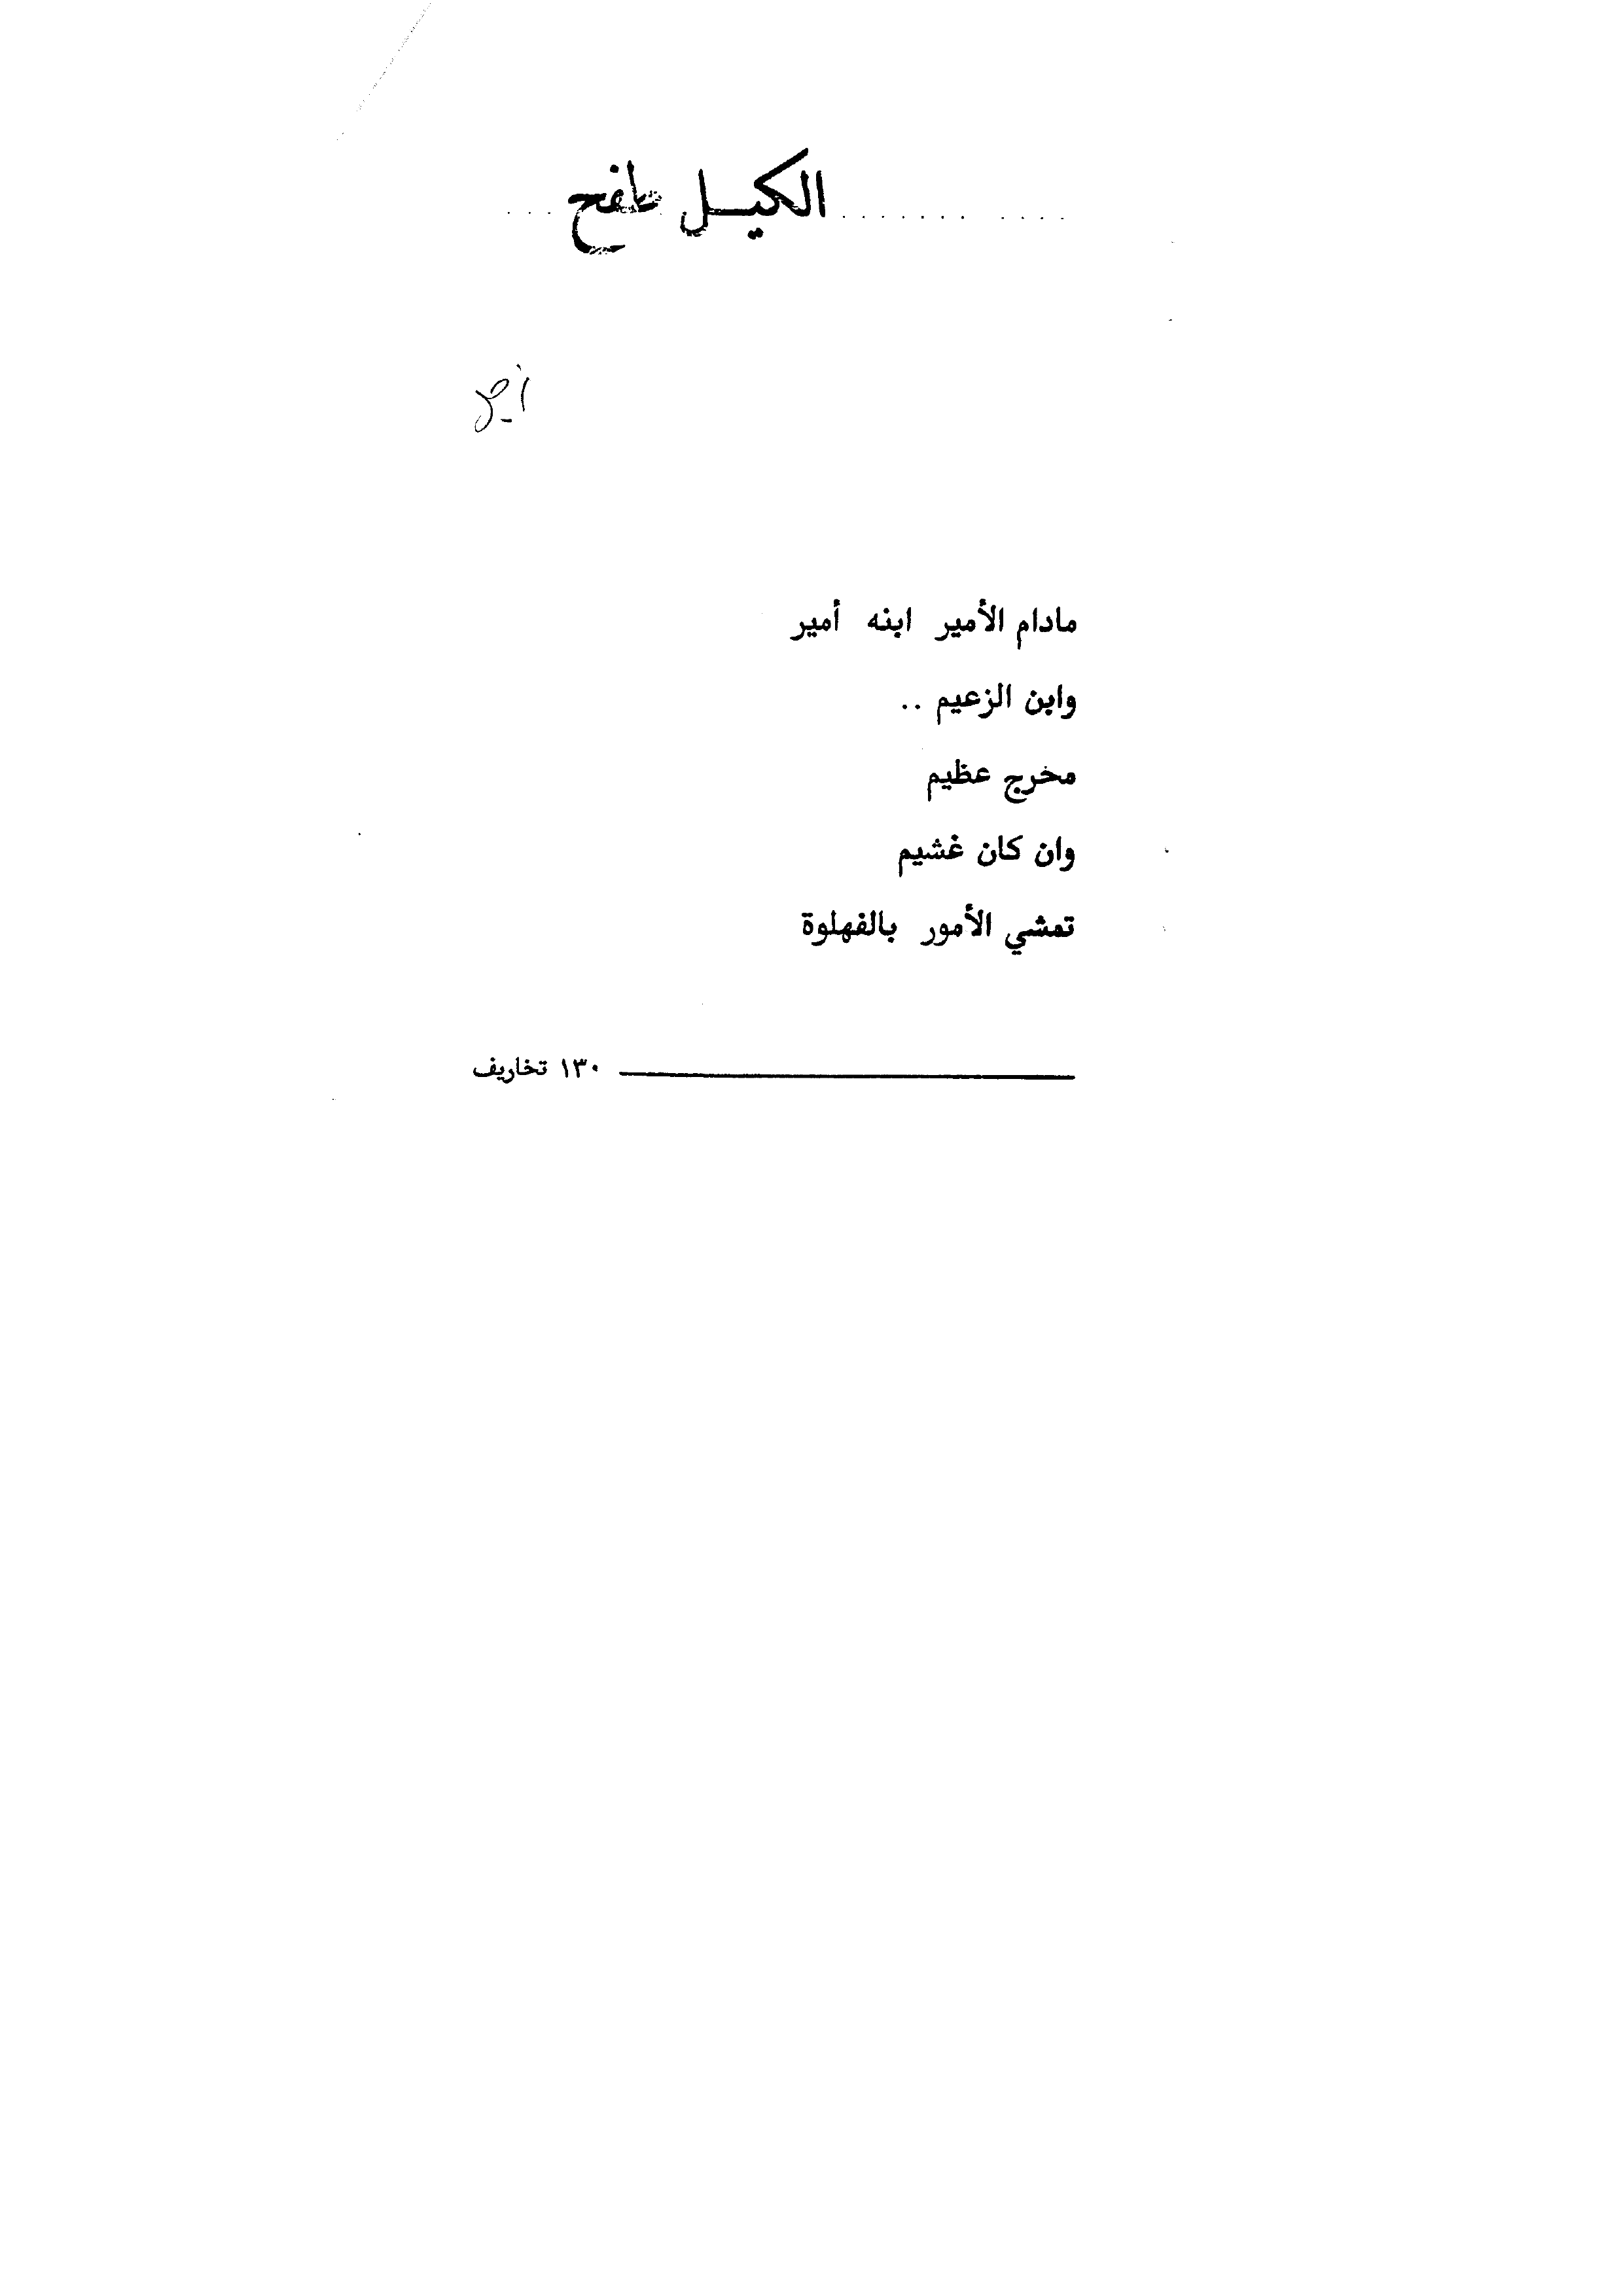 الكيل طفح
مادام الأمير ابنه أمير
وابن الزعيم ..
مخرج عظيم
وان كان غشيم
تمشي الأمور بالفهلوة
١٣٠ تخاريف